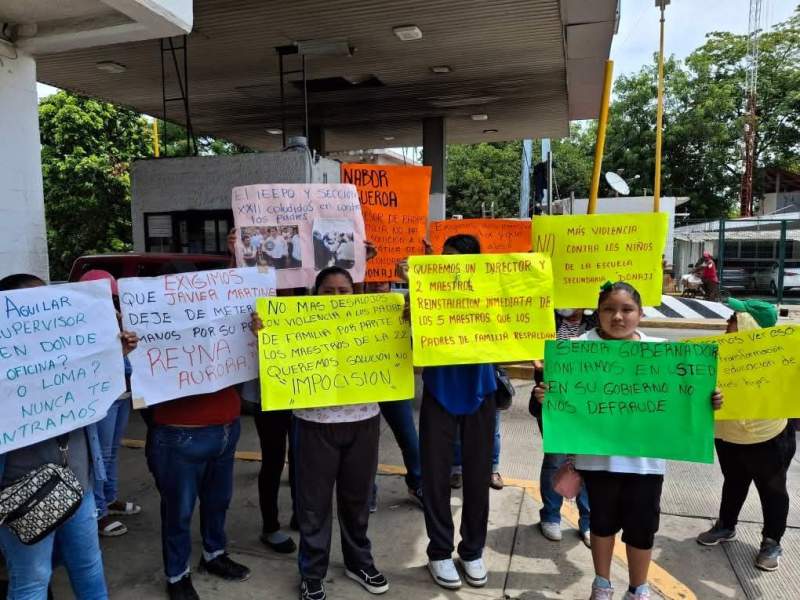 AGUILAR
SUPERVISOR
EN DONDE
OFICINA?
O LOMA?
NUNCA TE
EXIGIMOS
QUE JAVIER MARTINE
DEJE DE METER
MANOS POR SU
REYNA
AURORA
El IEEPO Y SECCIÓN
XXII coludidos en contra
los padres
NABOR
DE
NO MAS DESALOJOS
CON VIOLENCIA A LOS PADRES
DE FAMILIA POR PARTE DE
LOS MAESTROS DE LA 22
QUEREMOS SOLUCIÓN NO
"IMPOCISION"
QUEREMOS UN DIRECTOR Y
2 MAESTROS
REINSTALACION INMEDIATA DE
LOS 5 MAESTROS QUE LOS
PADRES DE FAMILIA RESPALDAN
NO MAS VIOLENCIA
CONTRA LOS NIÑOS
DE LA ESCUELA
SECUNDARIA DONAJI
SEÑOR GOBERNADOR
CONFIAMOS EN USTED
EN SU GOBIERNO NO
NOS DEFRAUDE
transformación
educación de
hijos